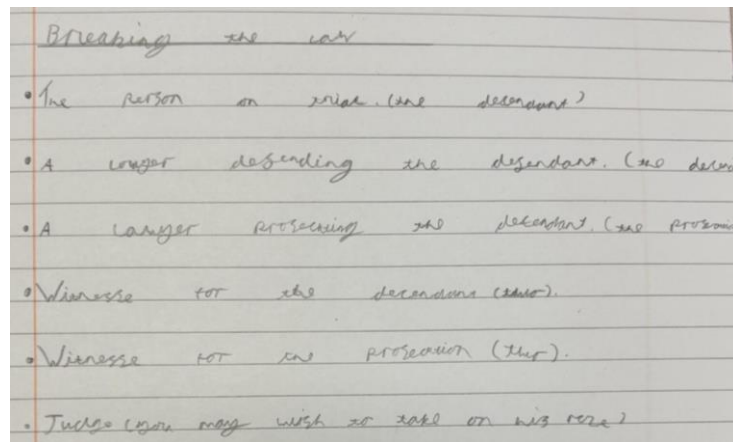 Breaking the law
• The person on trial. (the defendant)
• A lawyer defending the defendant. (the
• A lawyer prosecuting the defendant. (the
• Witnesse for the defendant
• Witnesse for the prosecution
• Judge (you may wish to take on his role)